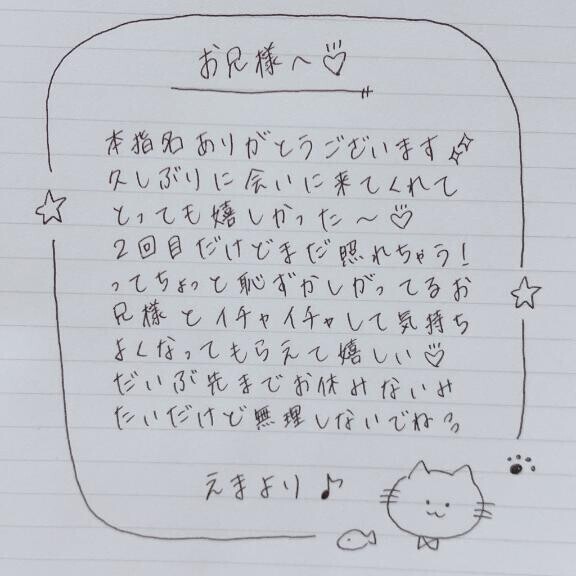 お兄様へ♡
本指名ありがとうございます
久しぶりに会いに来てくれて
とっても嬉しかった〜♡
2回目だけどまだ照れちゃう!
ってちょっと恥ずかしがってるお
兄様とイチャイチャして気持ち
よくなってもらえて嬉しい♡
だいぶ先までお休みないみ
たいだけど無理しないでねっっ
えまより♪